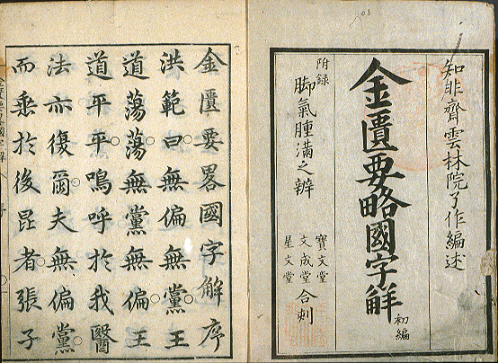 知非齋雲林院了作編述
金匱要略國字解初編
附録
脚氣腫滿之辨
寶文堂
文成堂合刻
星文堂
金匱要畧國字解序
洪範曰無偏無黨王
道蕩蕩無黨無偏王
道平平嗚呼於我醫
法亦復爾夫無偏黨
而垂於後昆者張子